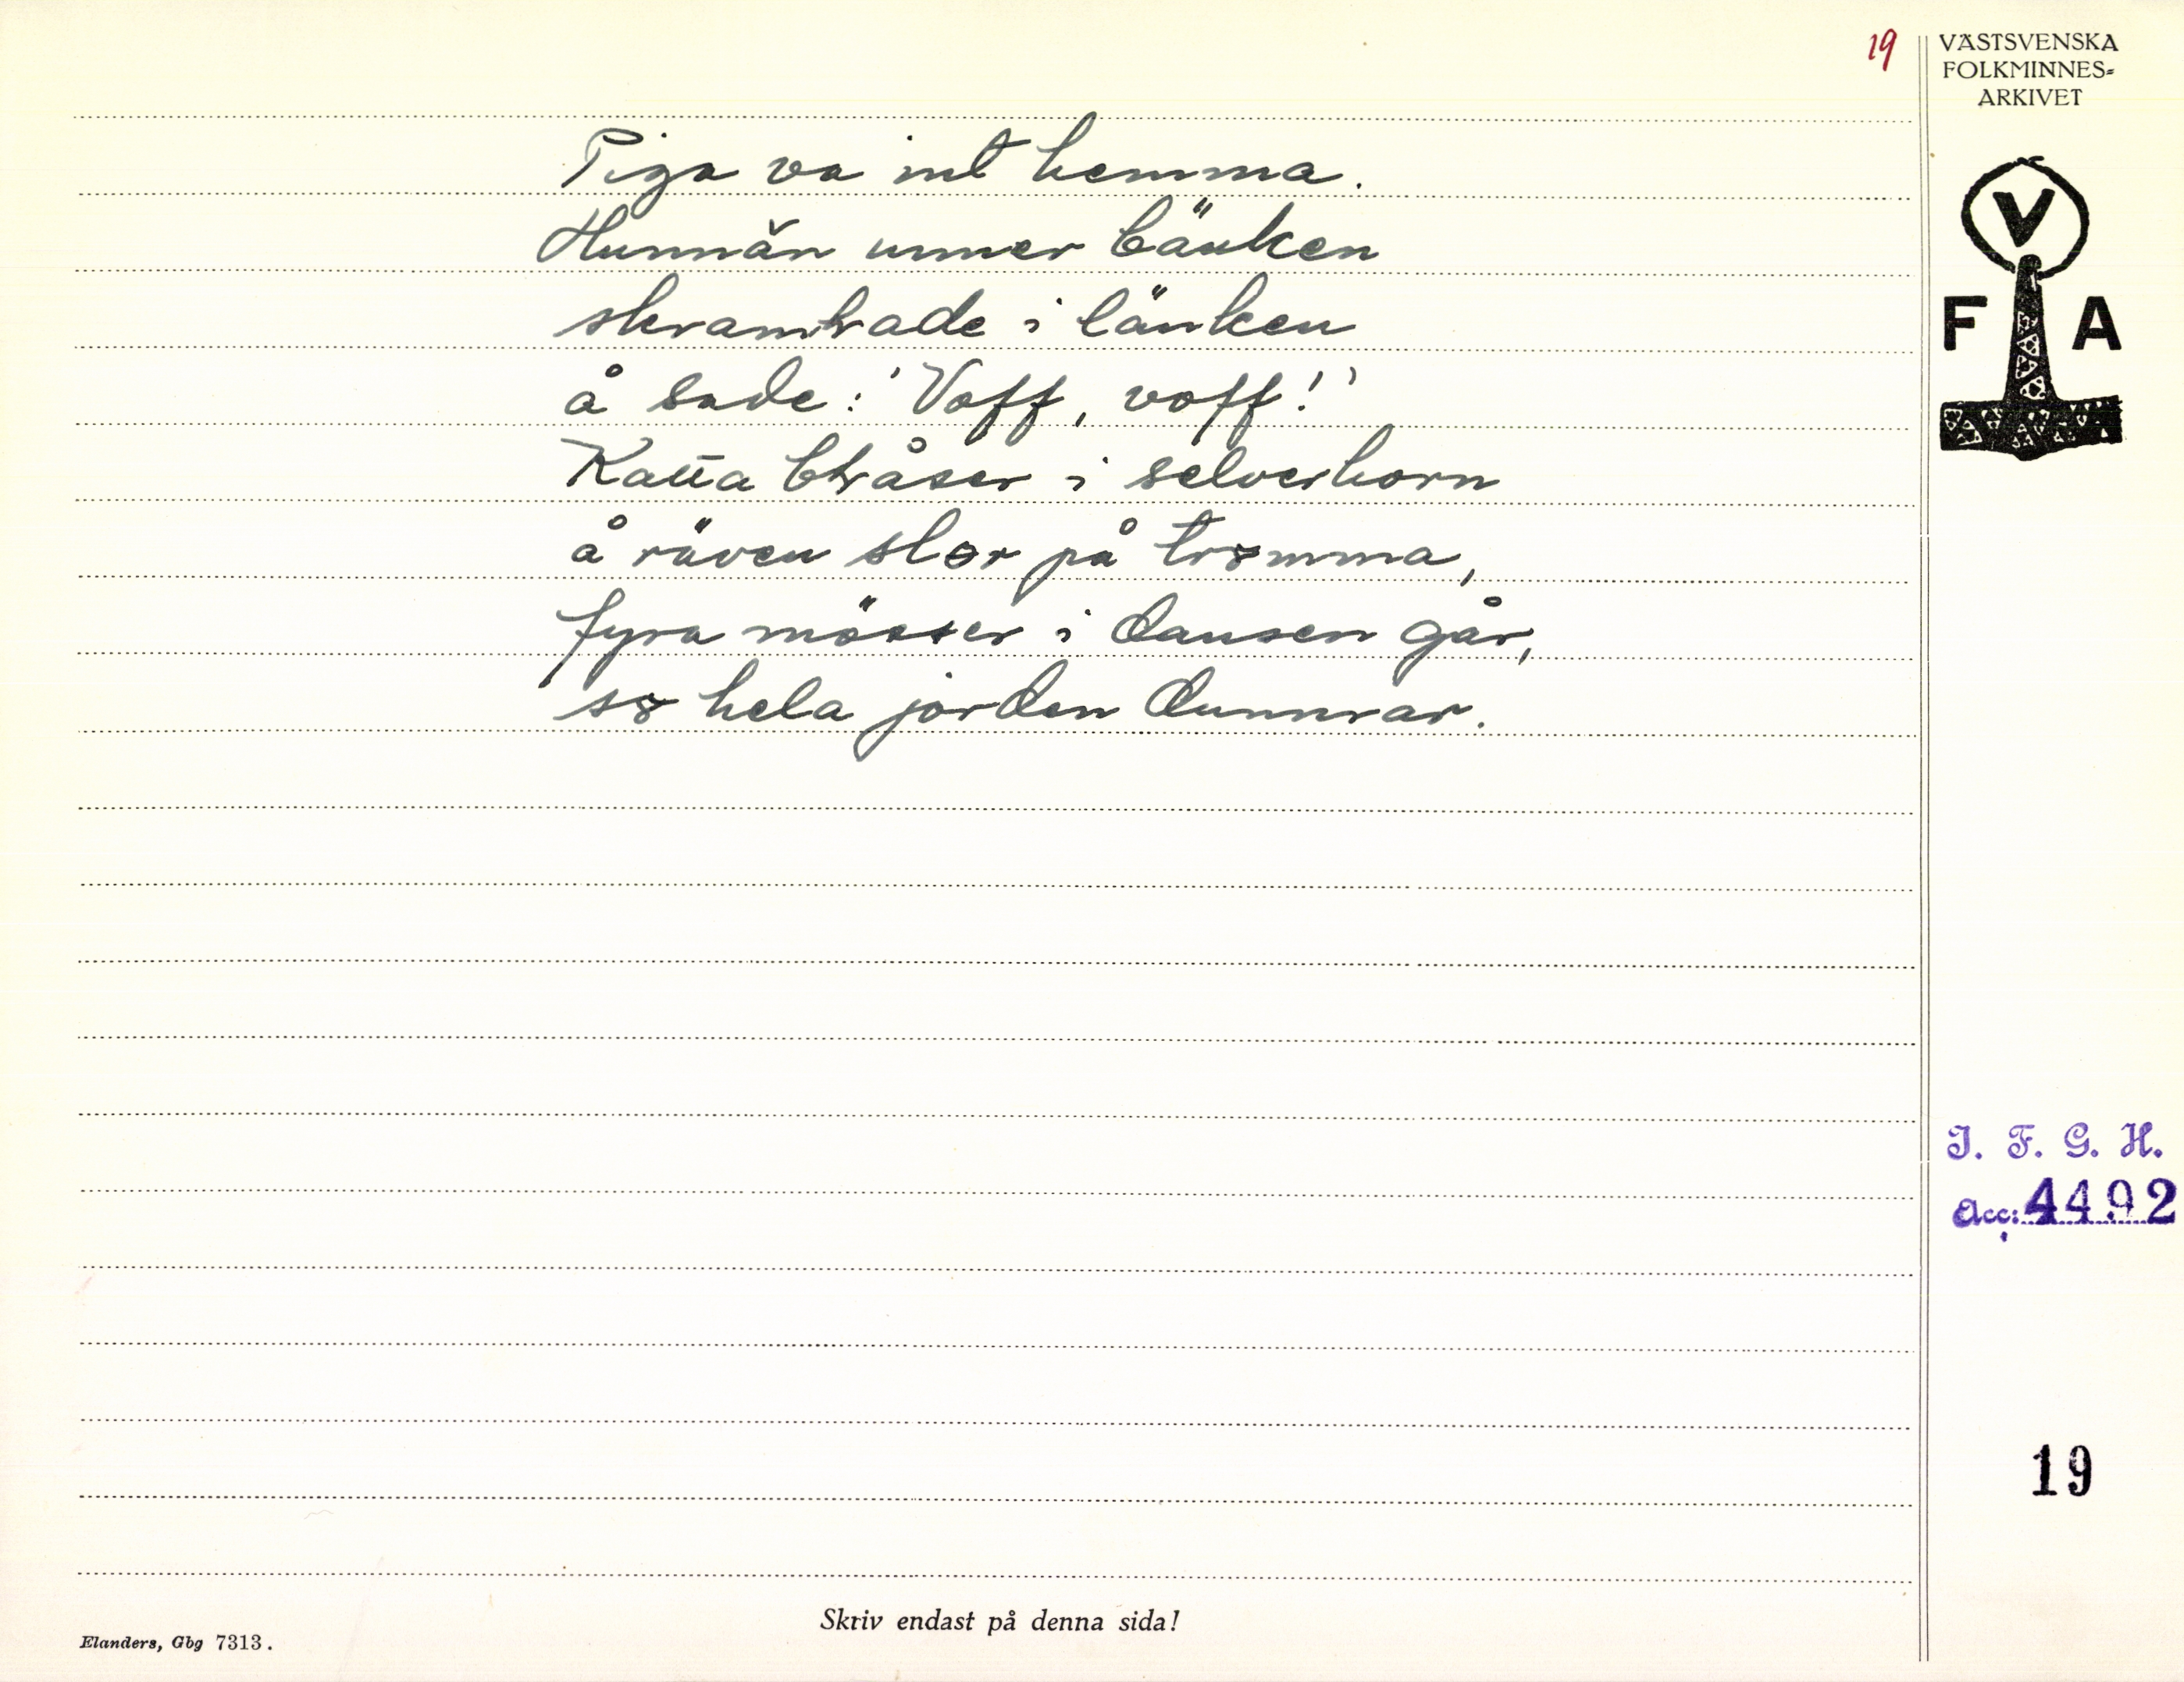 19
VÄSTSVENSKA
FOLKMINNES=
ARKIVET
V
F A
Piga va int hemma.
Hunnän unner bänken
skramlade i länken
å sade: 'Voff, voff!'
Katta blåser i selverhorn
å räven slor på tromma,
fyra mösser i dansen går,
so hela jorden dunnrar.
I. F. G. H.
Acc: 4492
19
Skriv endast på denna sida!
Elanders, Gbg 7313.